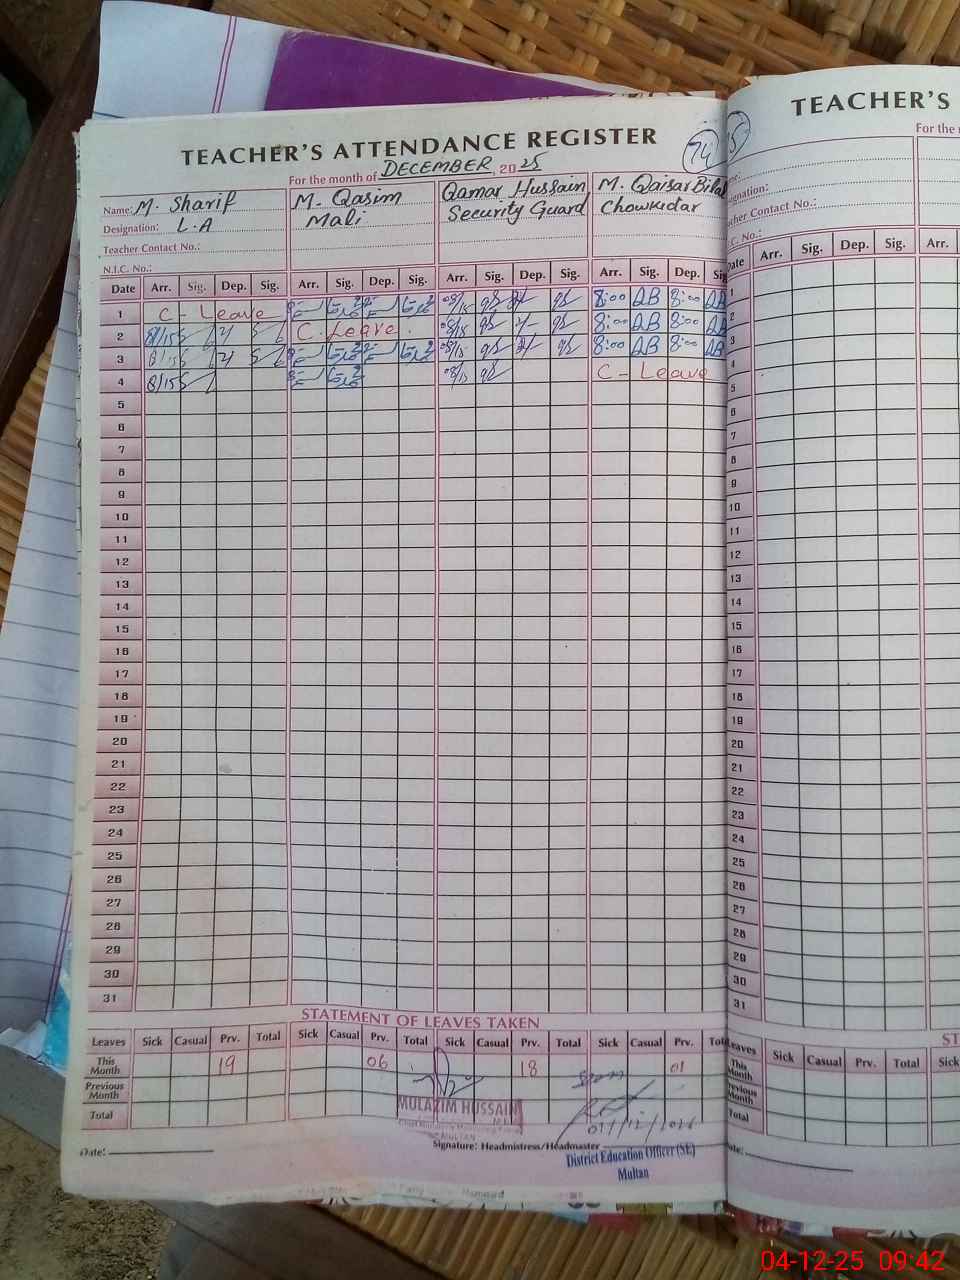 TEACHER'S ATTENDANCE REGISTER
74
For the month of DECEMBER, 2025
Name: M. Sharif
Designation: L.A
Teacher Contact No.:
N.I.C. No.:
M. Qasim
Mali
Qamar Hussain
Security Guard
M. Qaisar Bilal
Chowkidar
Date Arr. Sig. Dep. Sig. Arr. Sig. Dep. Sig. Arr. Sig. Dep. Sig. Arr. Sig. Dep. Sig
1 C - Leave 08/15 8:00 QB 8:00 QB
2 8/15 C. Leave. 08/15 8:00 QB 8:00 QB
3 8/15 08/15 8:00 QB 8:00 QB
4 8/15 08/15 C - Leave
5
6
7
8
9
10
11
12
13
14
15
16
17
18
19
20
21
22
23
24
25
26
27
28
29
30
31
STATEMENT OF LEAVES TAKEN
Leaves Sick Casual Prv. Total Sick Casual Prv. Total Sick Casual Prv. Total Sick Casual Prv. Total
This Month 19 06 18 01
Previous Month
Total
MULAZIM HUSSAIN
MULTAN
Date:
Signature: Headmistress/Headmaster
District Education Officer (SE)
Multan
TEACHER'S
75
For the
Designation:
Teacher Contact No.:
N.I.C. No.:
Date Arr. Sig. Dep. Sig. Arr.
1
2
3
4
5
6
7
8
9
10
11
12
13
14
15
16
17
18
19
20
21
22
23
24
25
26
27
28
29
30
31
ST
Leaves Sick Casual Prv. Total Sick
This Month
Previous Month
Total
Date:
04-12-25 09:42